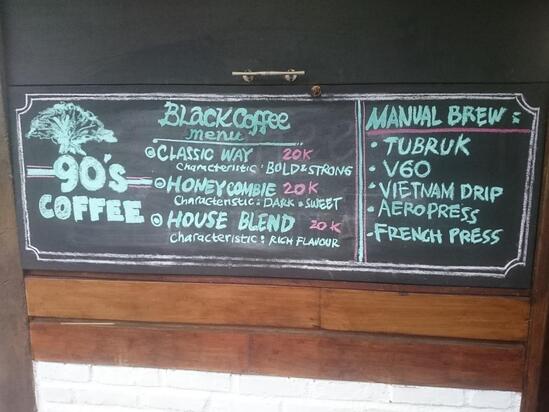 90's
COFFEE
BLACK COFFEE
menu
CLASSIC WAY 20K
Characteristic : BOLD & STRONG
HONEYCOMBIE 20K
Characteristic : DARK & SWEET
HOUSE BLEND 20K
Characteristic : RICH FLAVOUR
MANUAL BREW :
• TUBRUK
• V60
• VIETNAM DRIP
• AEROPRESS
• FRENCH PRESS